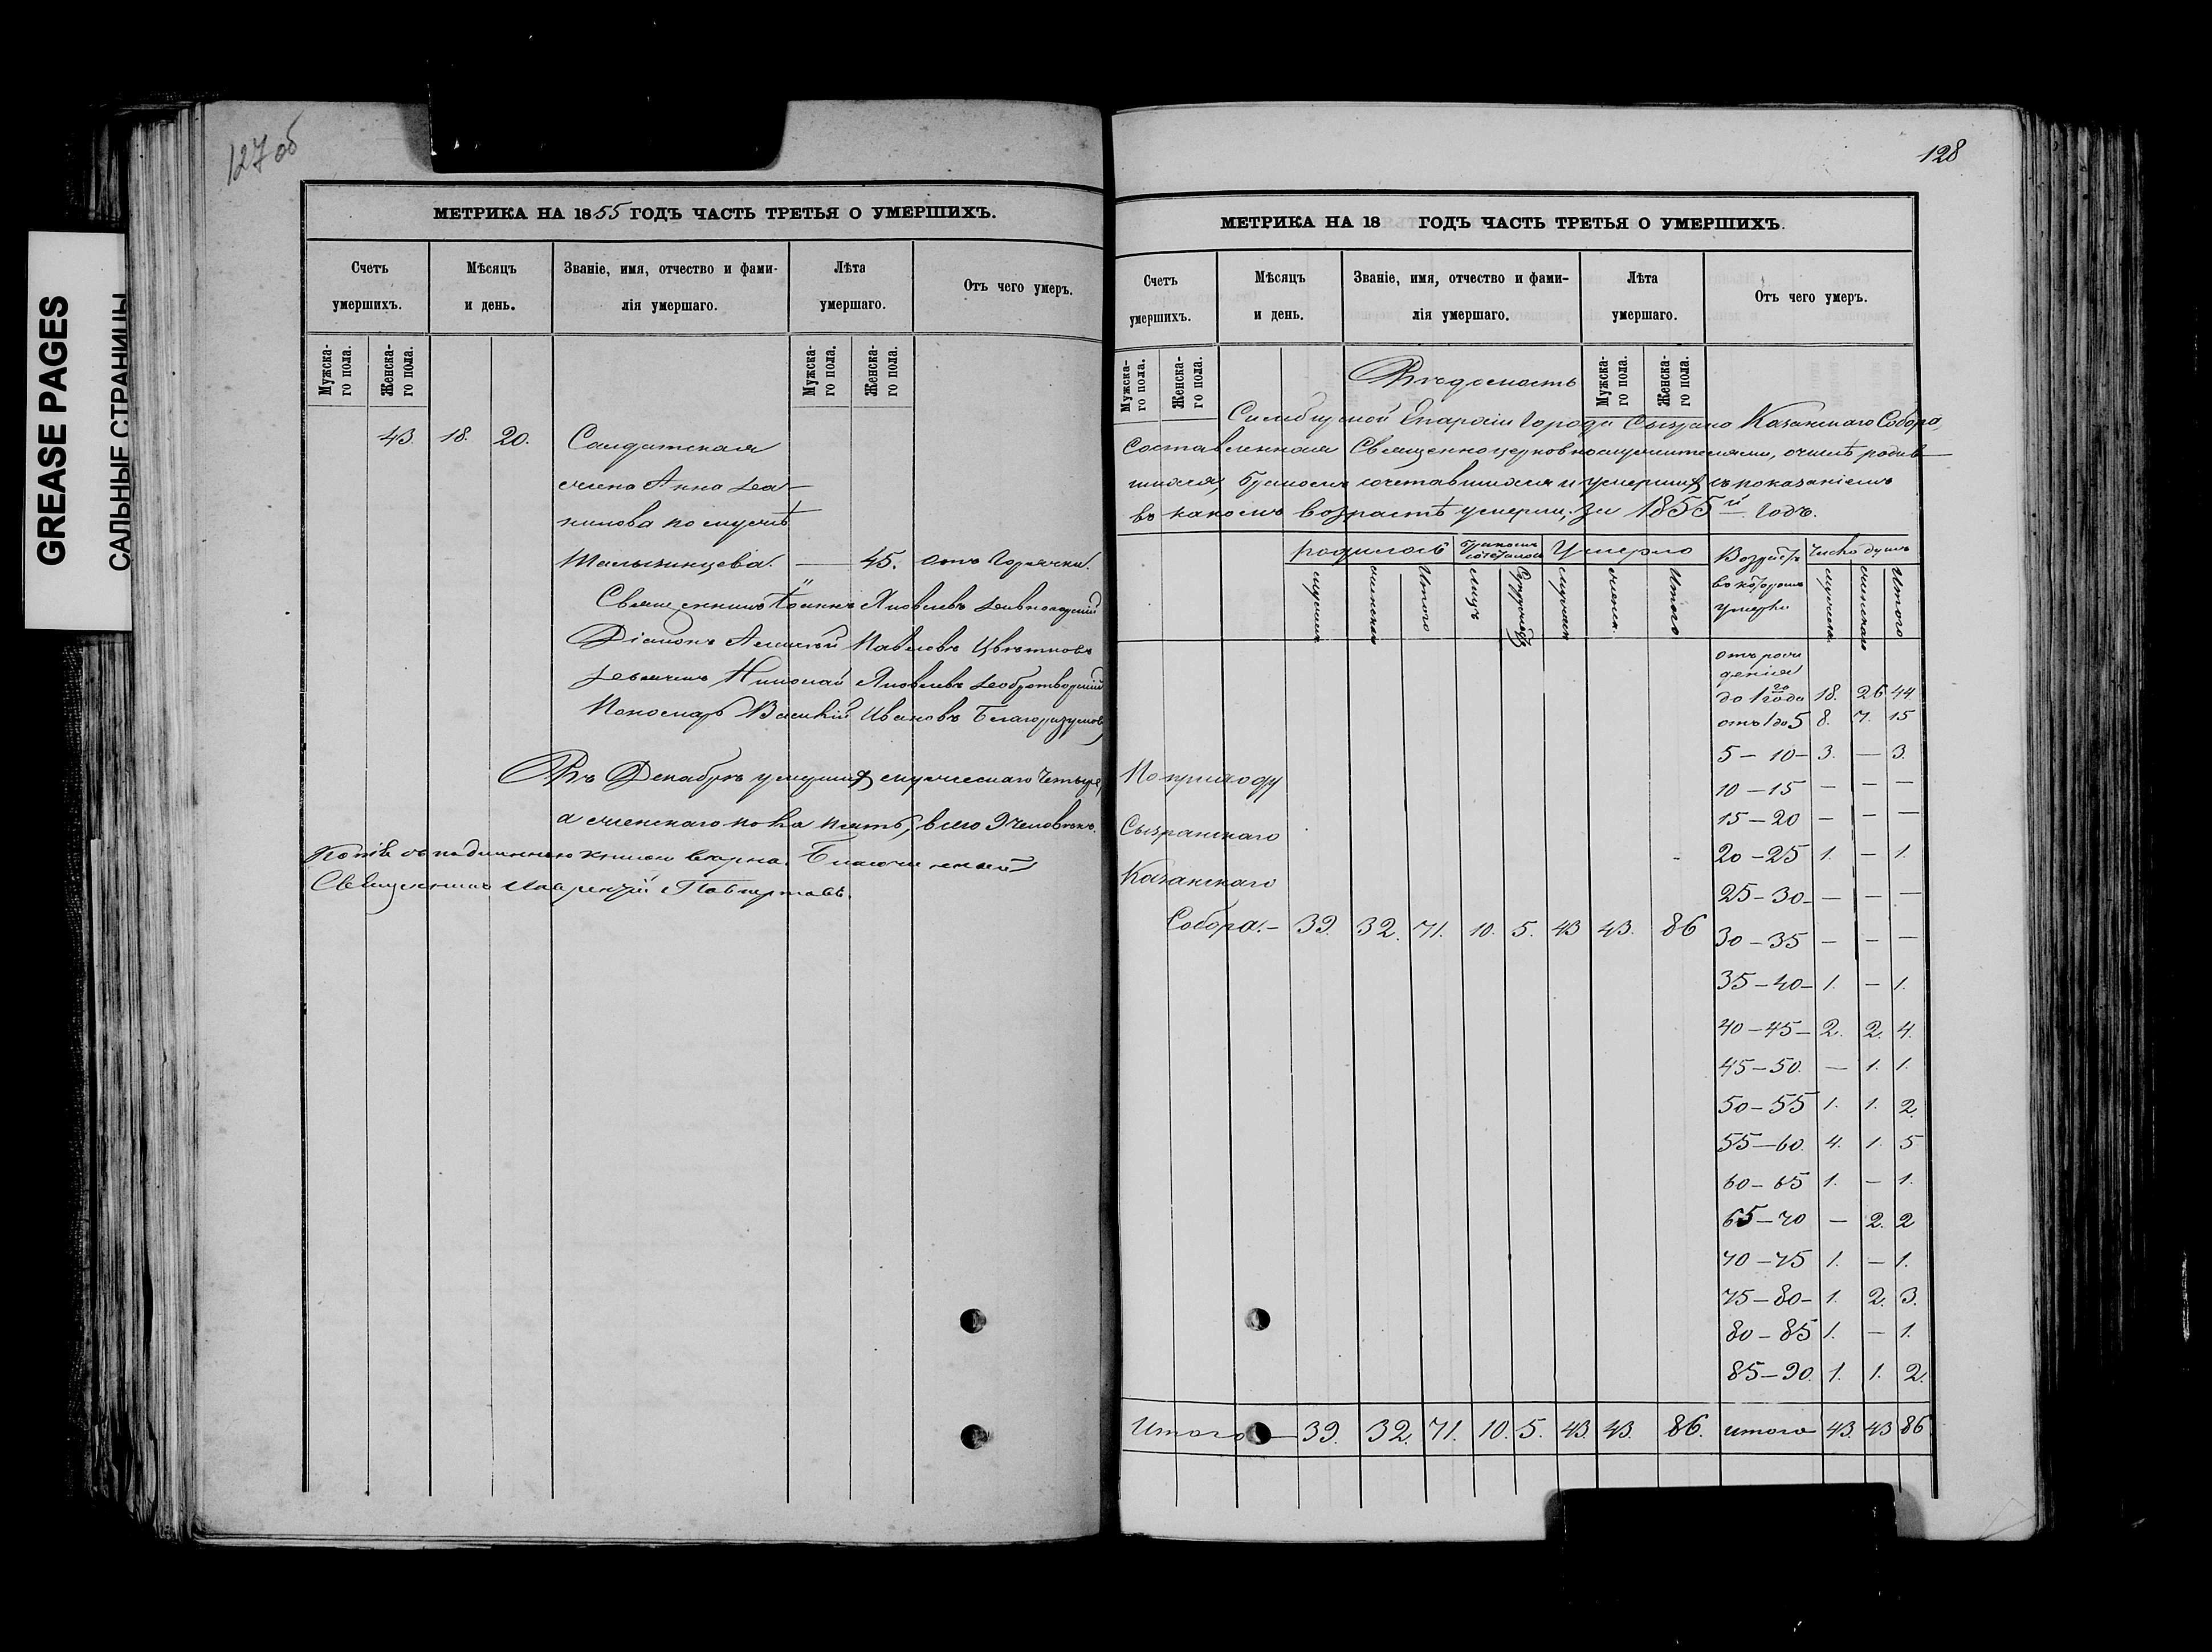 GREASE PAGES
САЛЬНЫЕ СТРАНИЦЫ
127 об
МЕТРИКА НА 1855 ГОДЪ ЧАСТЬ ТРЕТЬЯ О УМЕРШИХЪ.
Счетъ умершихъ.
Мѣсяцъ и день.
Званіе, имя, отчество и фами-
лія умершаго.
Лѣта умершаго.
Отъ чего умеръ.
Мужска-го пола.
Женска-го пола.
Мужска-го пола.
Женска-го пола.
43. 18. 20. Солдатская
жена Анна
по мужѣ
45. отъ Горячки.
Священникъ Іоаннъ Яковлевъ
Діаконъ Алексѣй Павловъ Цвѣтковъ
Николай Яковлевъ Добротворскій
Пономарь Василій Ивановъ Благоразумовъ
Въ Декабрѣ умершихъ мужескаго четыре,
а женскаго пола пять, всего 9 человѣкъ.
Копія съ подлинною книгою вѣрна. Благочинный
Священникъ Лаврентій
128
МЕТРИКА НА 18 ГОДЪ ЧАСТЬ ТРЕТЬЯ О УМЕРШИХЪ.
Счетъ умершихъ.
Мѣсяцъ и день.
Званіе, имя, отчество и фами-
лія умершаго.
Лѣта умершаго.
Отъ чего умеръ.
Мужска-го пола.
Женска-го пола.
Мужска-го пола.
Женска-го пола
Вѣдомость
Симбирской Епархіи Города Сызрана Казанскаго Собора,
Составленная Священноцерковнослужителями, о числѣ родив-
шихся, бракомъ сочетавшихся и умершихъ съ показаніемъ
въ какомъ возрастѣ умерли, за 1855й Годъ.
родилось бракомъ сочеталось Умерло Число душъ
въ которомъ умерли
Итого лицъ Супружествъ женска. Итого Итого
отъ рож
денія
до 1го года 18. 26 44
отъ 1 до 5 8. 7. 15
5 – 10 – 3. — 3.
По приходу
10 – 15 — — —
15 – 20 — — —
Сызранскаго
20 – 25 1. — 1.
Казанскаго
25 – 30 — — —
Собора. – 39. 32. 71. 10. 5. 43 43. 86
30 – 35 — — —
35 – 40 – 1. — 1.
40 – 45 – 2. 2. 4.
45 – 50. — 1. 1.
50 – 55 1. 1. 2.
55 – 60. 4. 1. 5
60 – 65 1. — 1.
65 – 70 — 2. 2
70 – 75 1. — 1.
75 – 80 – 1. 2. 3.
80 – 85 1. — 1.
85 – 90. 1. 1. 2.
Итого 39. 32. 71. 10. 5. 43. 43. 86. итого 43. 43 86